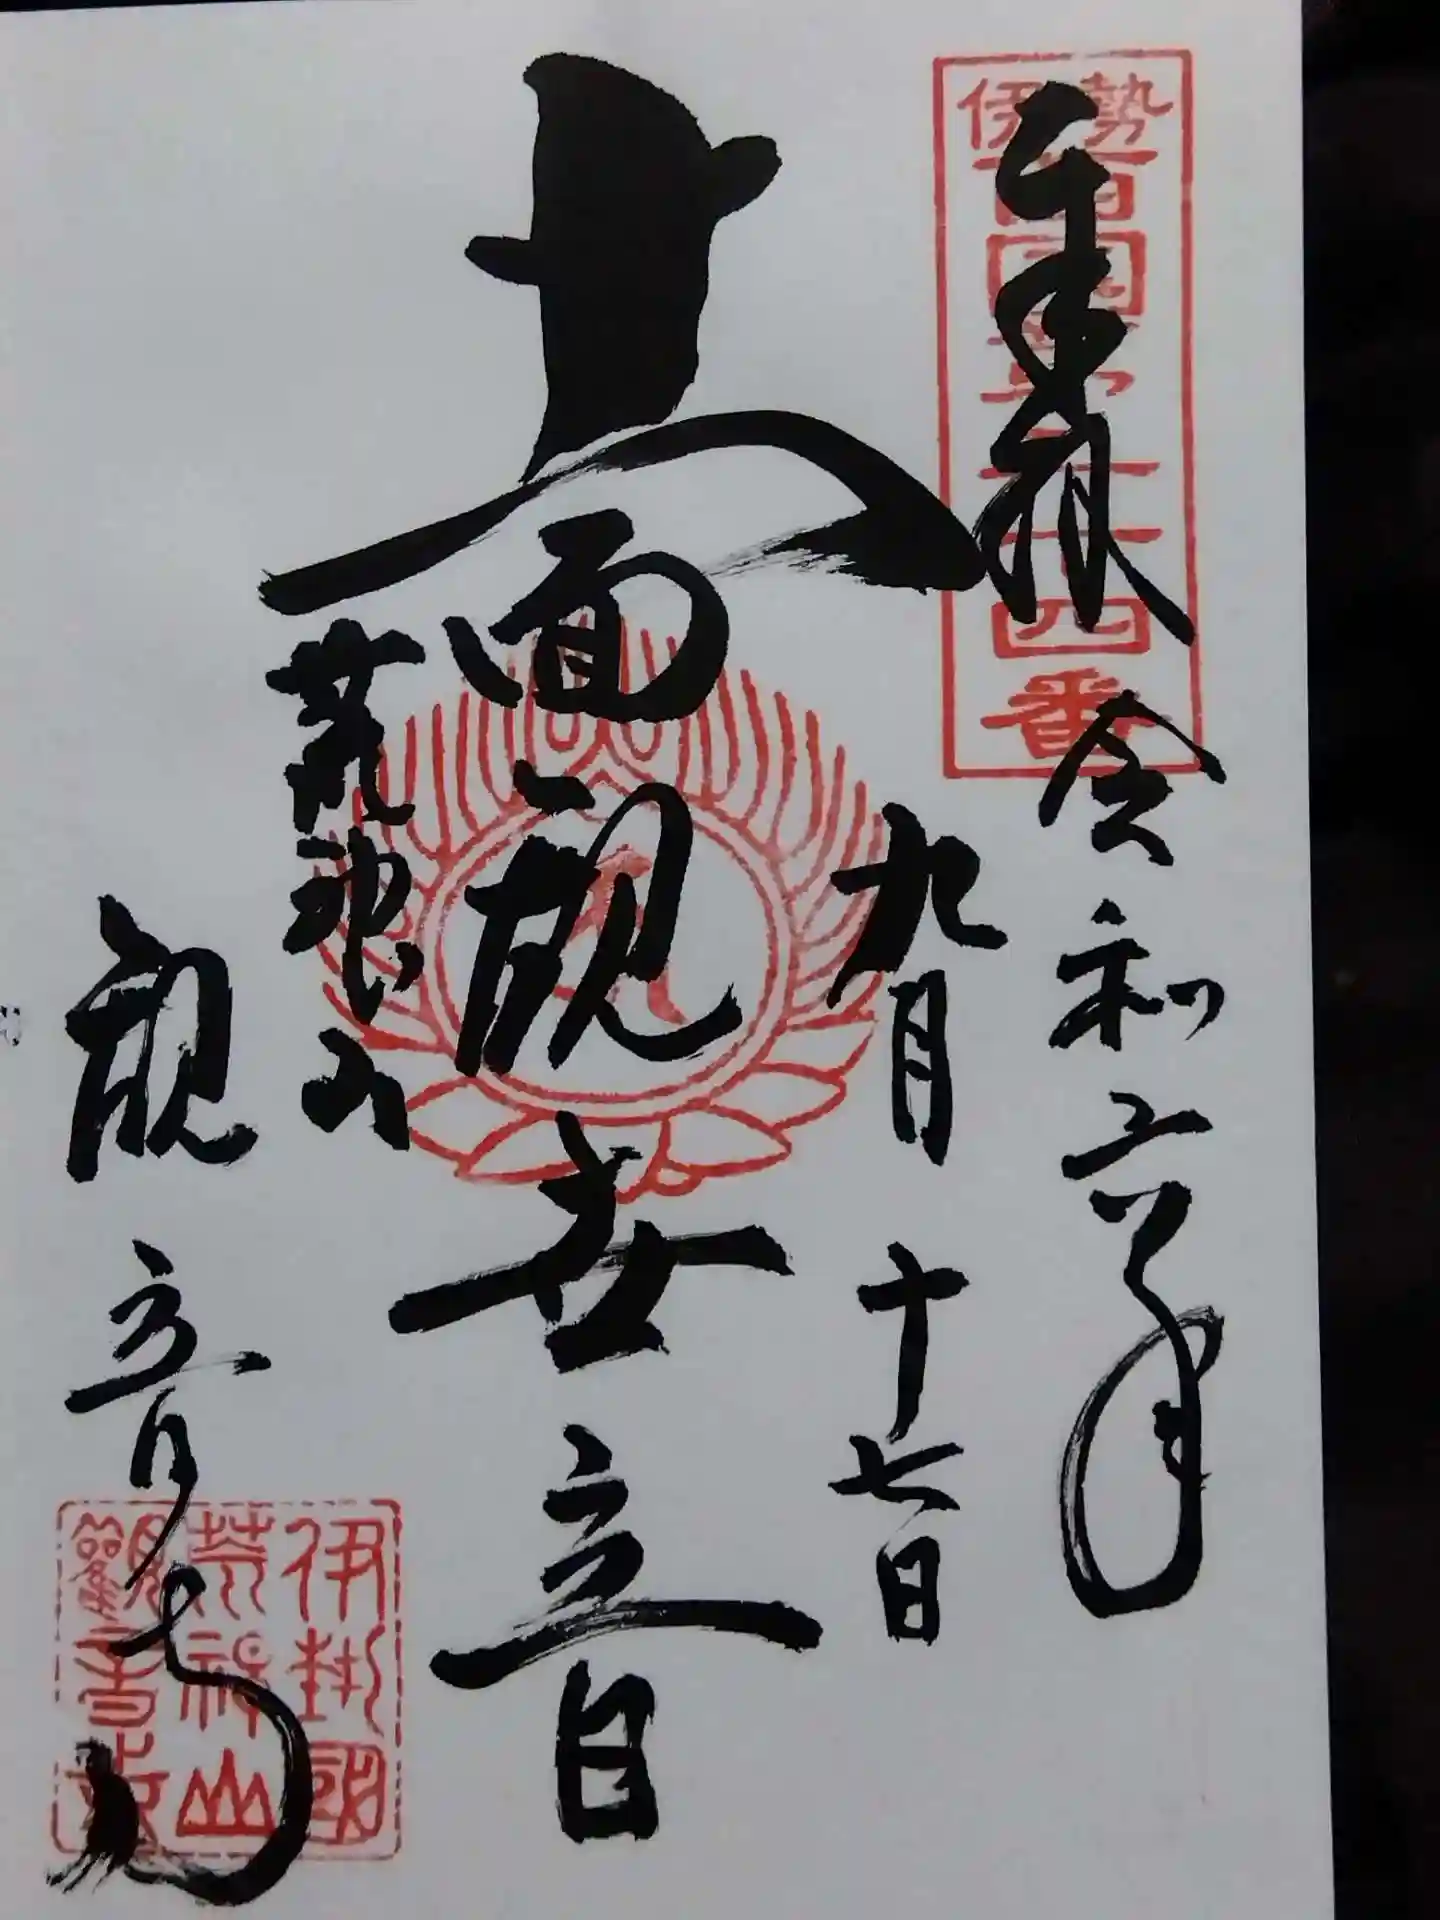 奉拝
伊勢
西国第三十四番
令和六年
九月十七日
十一面観世音
荒神山
観音寺
伊勢国
荒神山
観音寺